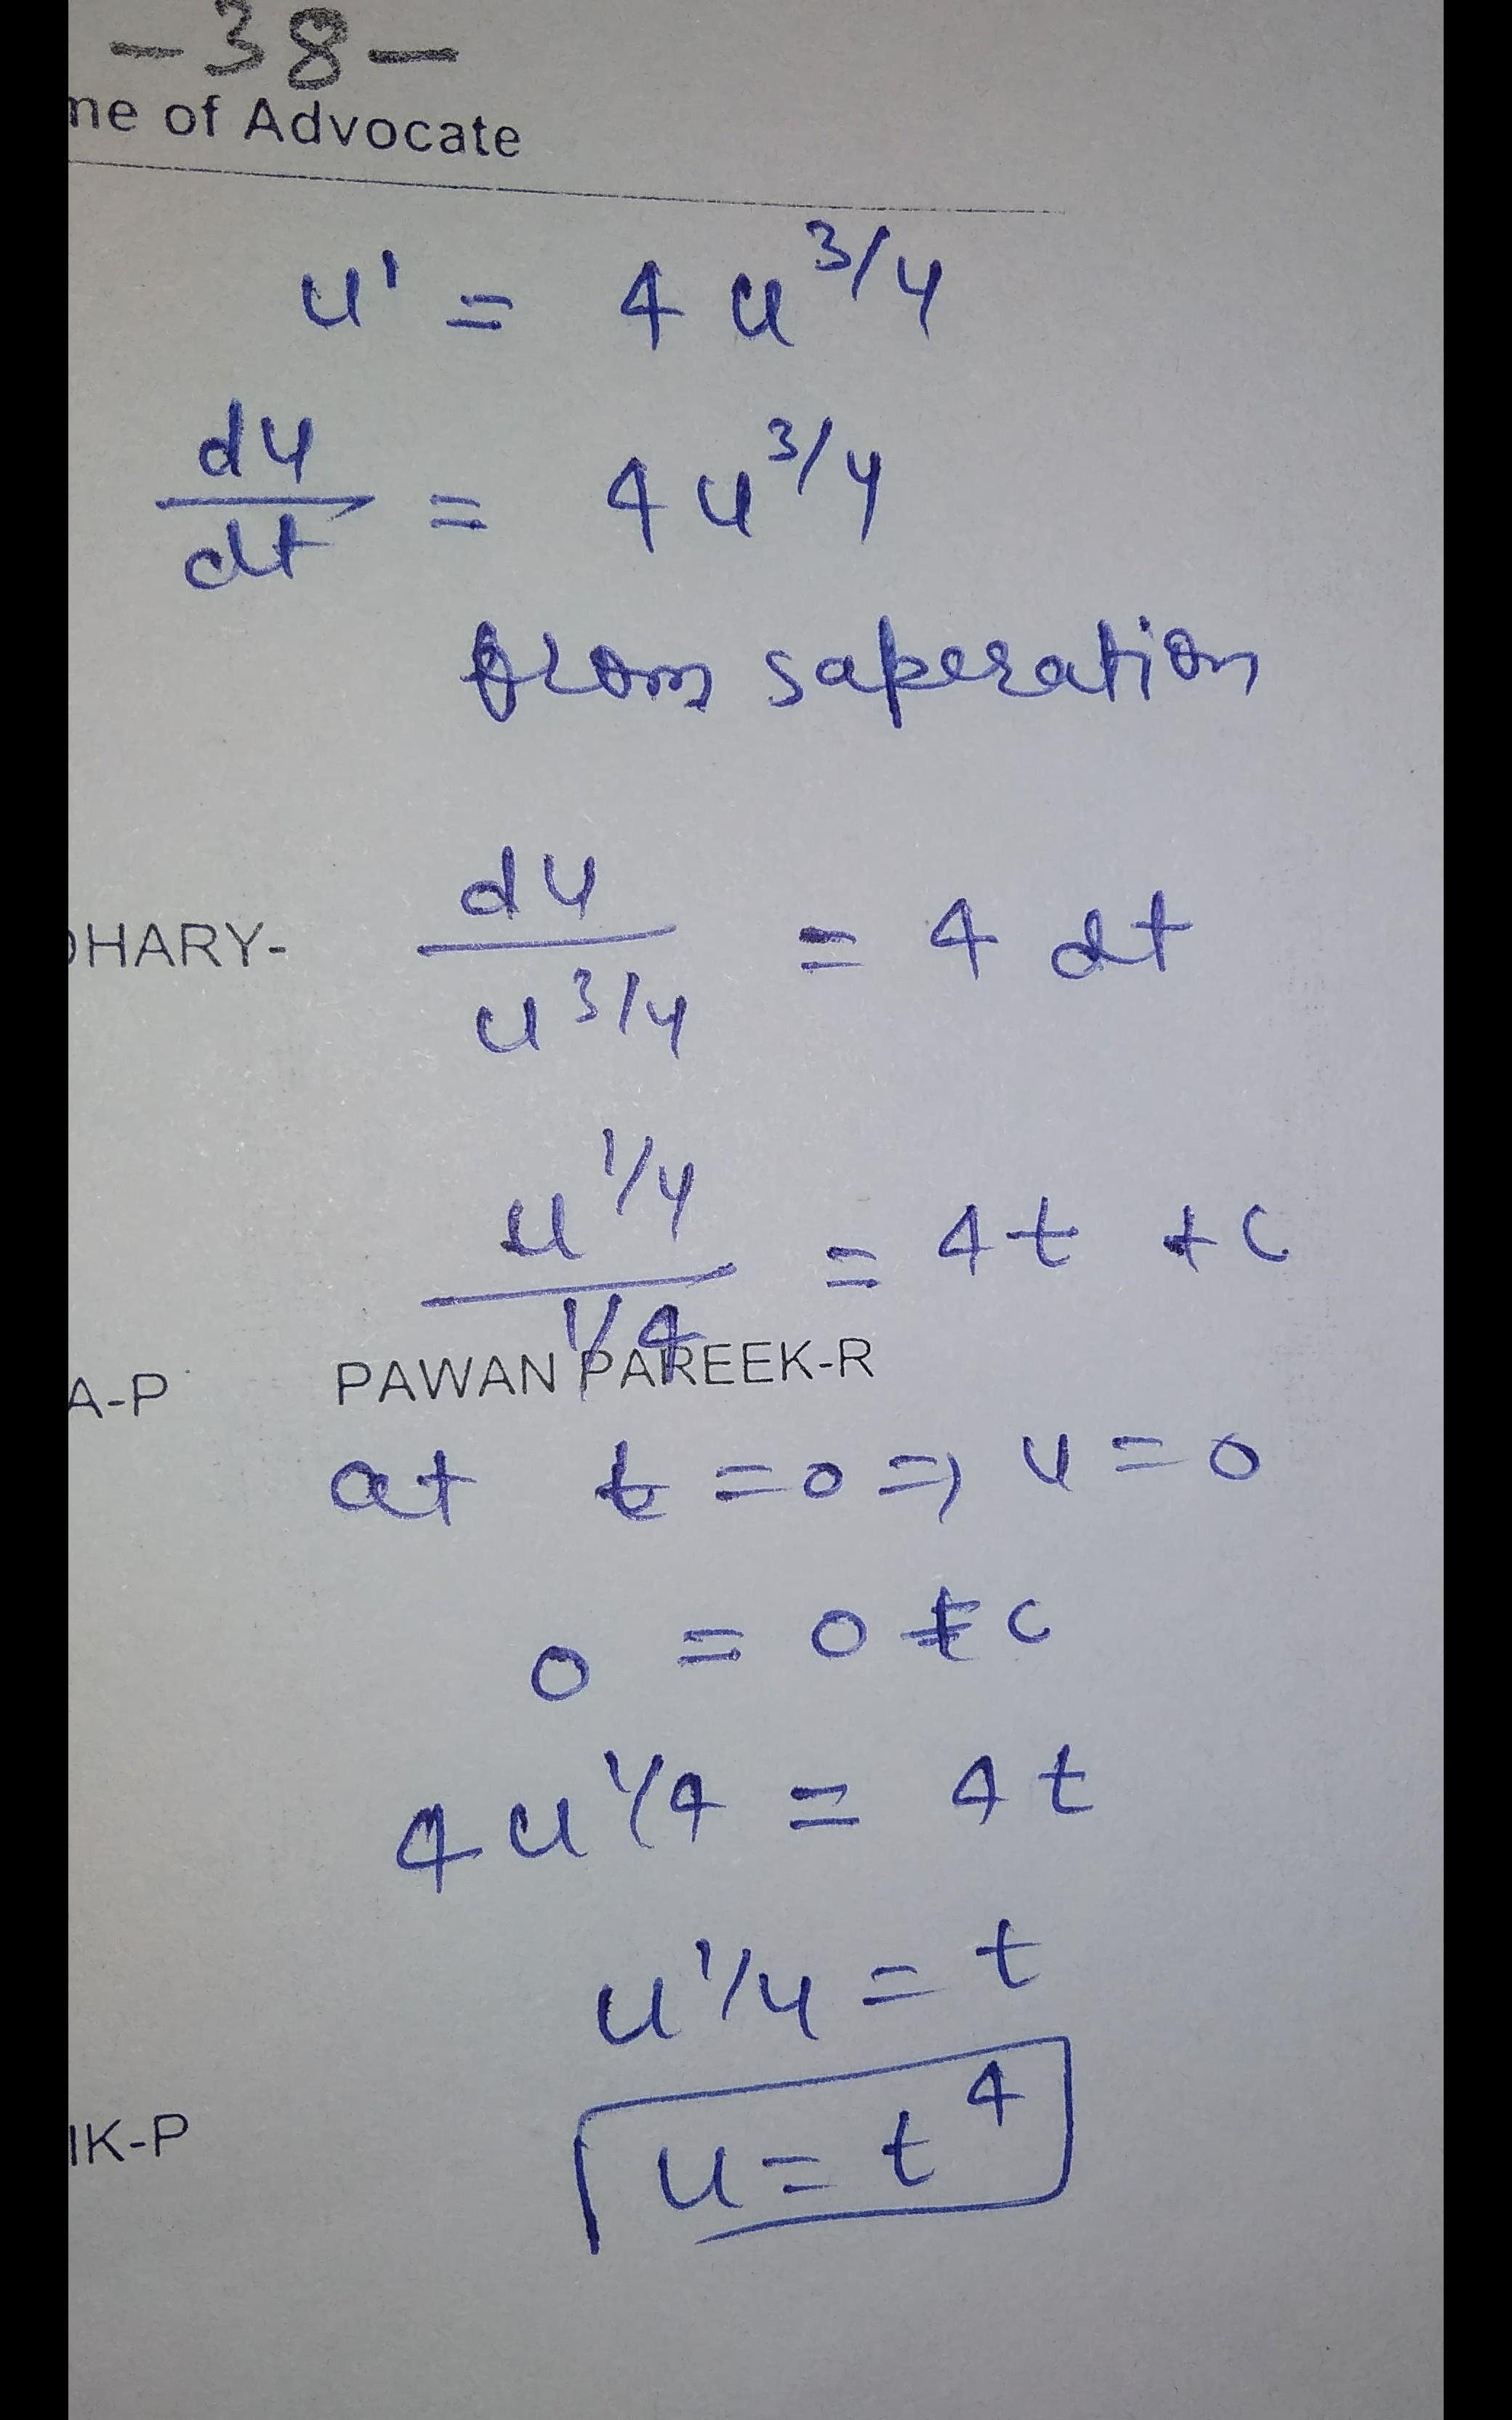 -38-
ne of Advocate
u' = 4 u^3/4
du/dt = 4 u^3/4
from saperation
DHARY-
du/u^3/4 = 4 dt
u^1/4 / 1/4 = 4t + c
A-P PAWAN PAREEK-R
at t = 0 => u = 0
0 = 0 + c
4 u^1/4 = 4 t
u^1/4 = t
IK-P
u = t^4